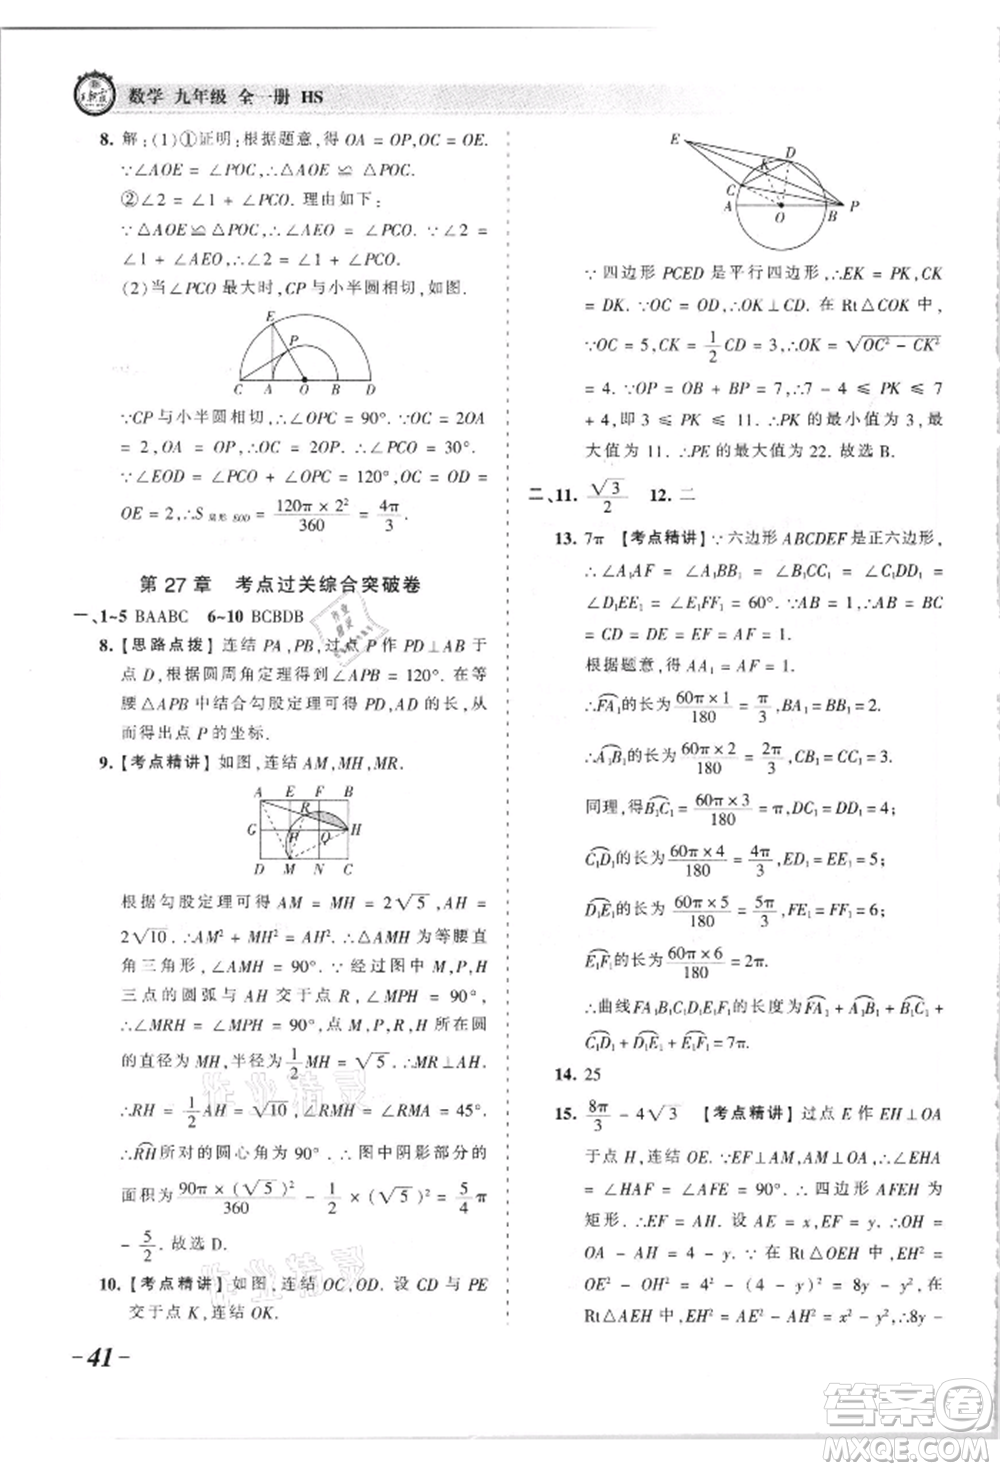 数学 九年级 全一册 HS
8. 解:(1)①证明:根据题意,得 OA = OP,OC = OE.
∵∠AOE = ∠POC,∴△AOE ≌ △POC.
②∠2 = ∠1 + ∠PCO. 理由如下:
∵△AOE ≌ △POC,∴∠AEO = ∠PCO. ∵∠2 =
∠1 + ∠AEO,∴∠2 = ∠1 + ∠PCO.
(2)当∠PCO 最大时,CP与小半圆相切,如图.
E
P
C A O B D
∵CP 与小半圆相切,∴∠OPC = 90°. ∵OC = 2OA
= 2,OA = OP,∴OC = 2OP. ∴∠PCO = 30°.
∵∠EOD = ∠PCO + ∠OPC = 120°,OC = OD =
OE = 2,∴S扇形 EOD = 120π × 2²/360 = 4π/3
第 27 章 考点过关综合突破卷
一、1~5 BAABC 6~10 BCBDB
8.【思路点拨】连结 PA,PB,过点 P 作 PD⊥AB 于
点 D,根据圆周角定理得∠APB = 120°,在等
腰△APB 中结合勾股定理可求 PD,AD 的长,从
而得出点 P 的坐标.
9.【考点精讲】如图,连结 AM,MH,MR.
A E F B
R
G P Q H
D M N C
根据勾股定理可得 AM = MH = 2√5,AH =
2√10. ∴AM² + MH² = AH². ∴△AMH 为等腰直
角三角形,∠AMH = 90°. ∵经过图中 M,P,H
三点的圆弧与 AH 交于点 R,∠MPH = 90°,
∴∠MRH = ∠MPH = 90°,点 M,P,R,H 所在圆
的直径为 MH,半径为 1/2 MH = √5. ∴MR⊥AH.
∴RH = 1/2 AH = √10,∠RMH = ∠RMA = 45°.
∴RH所对的圆心角为 90°. ∴图中阴影部分的
面积为 90π × (√5)²/360 − 1/2 × (√5)² = 5/4 π
− 5/2. 故选 D.
10.【考点精讲】如图,连结 OC,OD. 设 CD 与 PE
交于点 K,连结 OK.
- 41 -
E K D
C
A O B P
∵四边形 PCED 是平行四边形,∴EK = PK,CK
= DK. ∵OC = OD,∴OK⊥CD. 在 Rt△COK 中,
∵OC = 5,CK = 1/2 CD = 3,∴OK = √(OC² − CK²)
= 4. ∵OP = OB + BP = 7,∴7 − 4 ≤ PK ≤ 7
+ 4,即 3 ≤ PK ≤ 11. ∴PK 的最小值为 3,最
大值为 11. ∴PE 的最大值为 22. 故选 B.
二、11. √3/2 12. 二
13. 7π 【考点精讲】∵六边形 ABCDEF 是正六边形,
∴∠A₁AF = ∠A₁BB₁ = ∠B₁CC₁ = ∠C₁DD₁ =
∠D₁EE₁ = ∠E₁FF₁ = 60°,FA = AB = BC =
CD.
根据题意,得 AA₁ = FA = 1.
∴FA₁的长为 60π × 1/180 = π/3,BA₁ = BB₁ = 2.
∴A₁B₁的长为 60π × 2/180 = 2π/3,CB₁ = CC₁ = 3.
同理,得B₁C₁的长为 60π × 3/180 = π,DC₁ = DD₁ = 4;
C₁D₁的长为 60π × 4/180 = 4π/3,ED₁ = EE₁ = 5;
D₁E₁的长为 60π × 5/180 = 5π/3,FE₁ = FF₁ = 6;
E₁F₁的长为 60π × 6/180 = 2π.
∴曲线FA₁B₁C₁D₁E₁F₁的长度为FA₁ + A₁B₁ +
B₁C₁ + C₁D₁ + D₁E₁ + E₁F₁ = 7π.
14. 25
15. 8π/3 − 4√3 【考点精讲】过点 E 作 EH⊥OA
于点 H,连结 OE. ∵EF⊥AM,OA⊥AC,∴∠EHA
= ∠FAH = ∠AFE = 90°. ∴四边形 AFEH 为
矩形. ∴EF = AH. 设 AE = x,EF = y,∴OH =
OA − AH = OA − EF = 4 − y. 在 Rt△OEH 中,
EH² = OE² − OH² = 4² − (4 − y)² = 8y − y². 在
Rt△AEH 中,EH² = AE² − AH² = x² − y²,∴8y −
答案圈
MXQE.COM
作业精灵
作业精灵